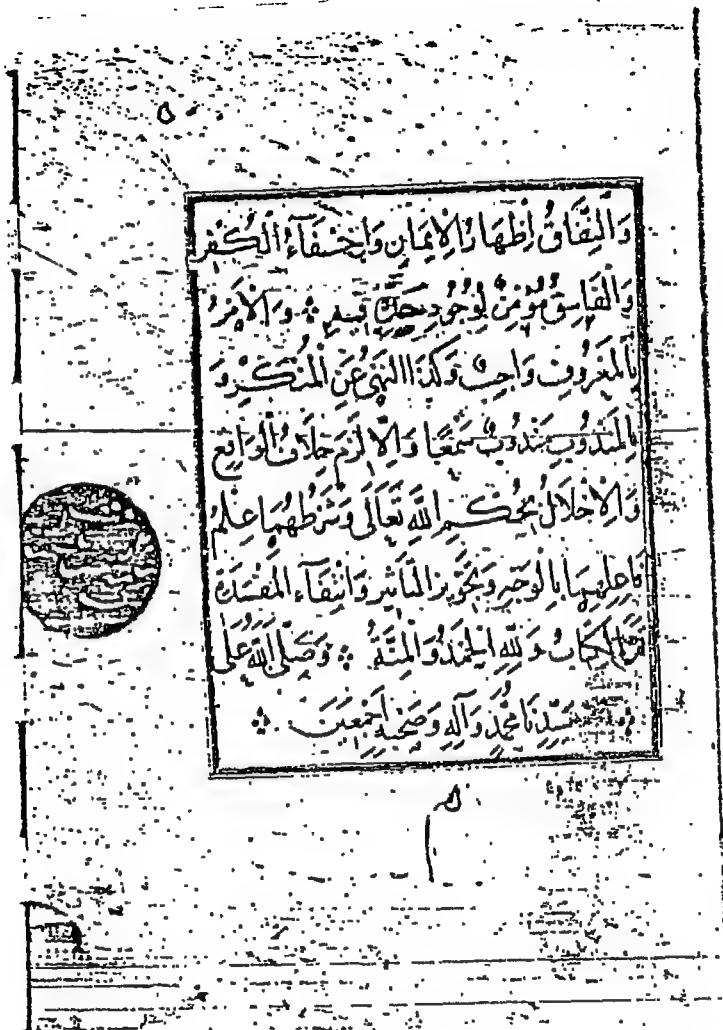 وَالنِّفَاقُ اِظْهَارُ الْاِيمَانِ وَاِخْفَآءُ الْكُفْرِ
وَالْفَاسِقُ مُؤْمِنٌ لِوُجُودِ حَدِّهِ فِيهِ ۞ وَالْاَمْرُ
بِالْمَعْرُوفِ وَاجِبٌ وَكَذَا النَّهْىُ عَنِ الْمُنْكَرِ وَ
بِالْمَنْدُوبِ مَنْدُوبٌ سَمْعًا وَاِلَّا لَزِمَ خِلَافُ الْوَاقِعِ
وَالْاِخْلَالُ بِحُكْمِ اللّٰهِ تَعَالَى وَشَرْطُهُمَا عِلْمُ
فَاعِلِهِمَا بِالْوَجْهِ وَتَجْوِيزُ التَّاْثِيرِ وَانْتِفَآءُ الْمَفْسَدَةِ
تَمَّ الْكِتَابُ وَلِلّٰهِ الْحَمْدُ وَالْمِنَّةُ ۞ وَصَلَّى اللّٰهُ عَلَى
سَيِّدِنَا مُحَمَّدٍ وَآلِهِ وَصَحْبِهِ اَجْمَعِينَ ۞